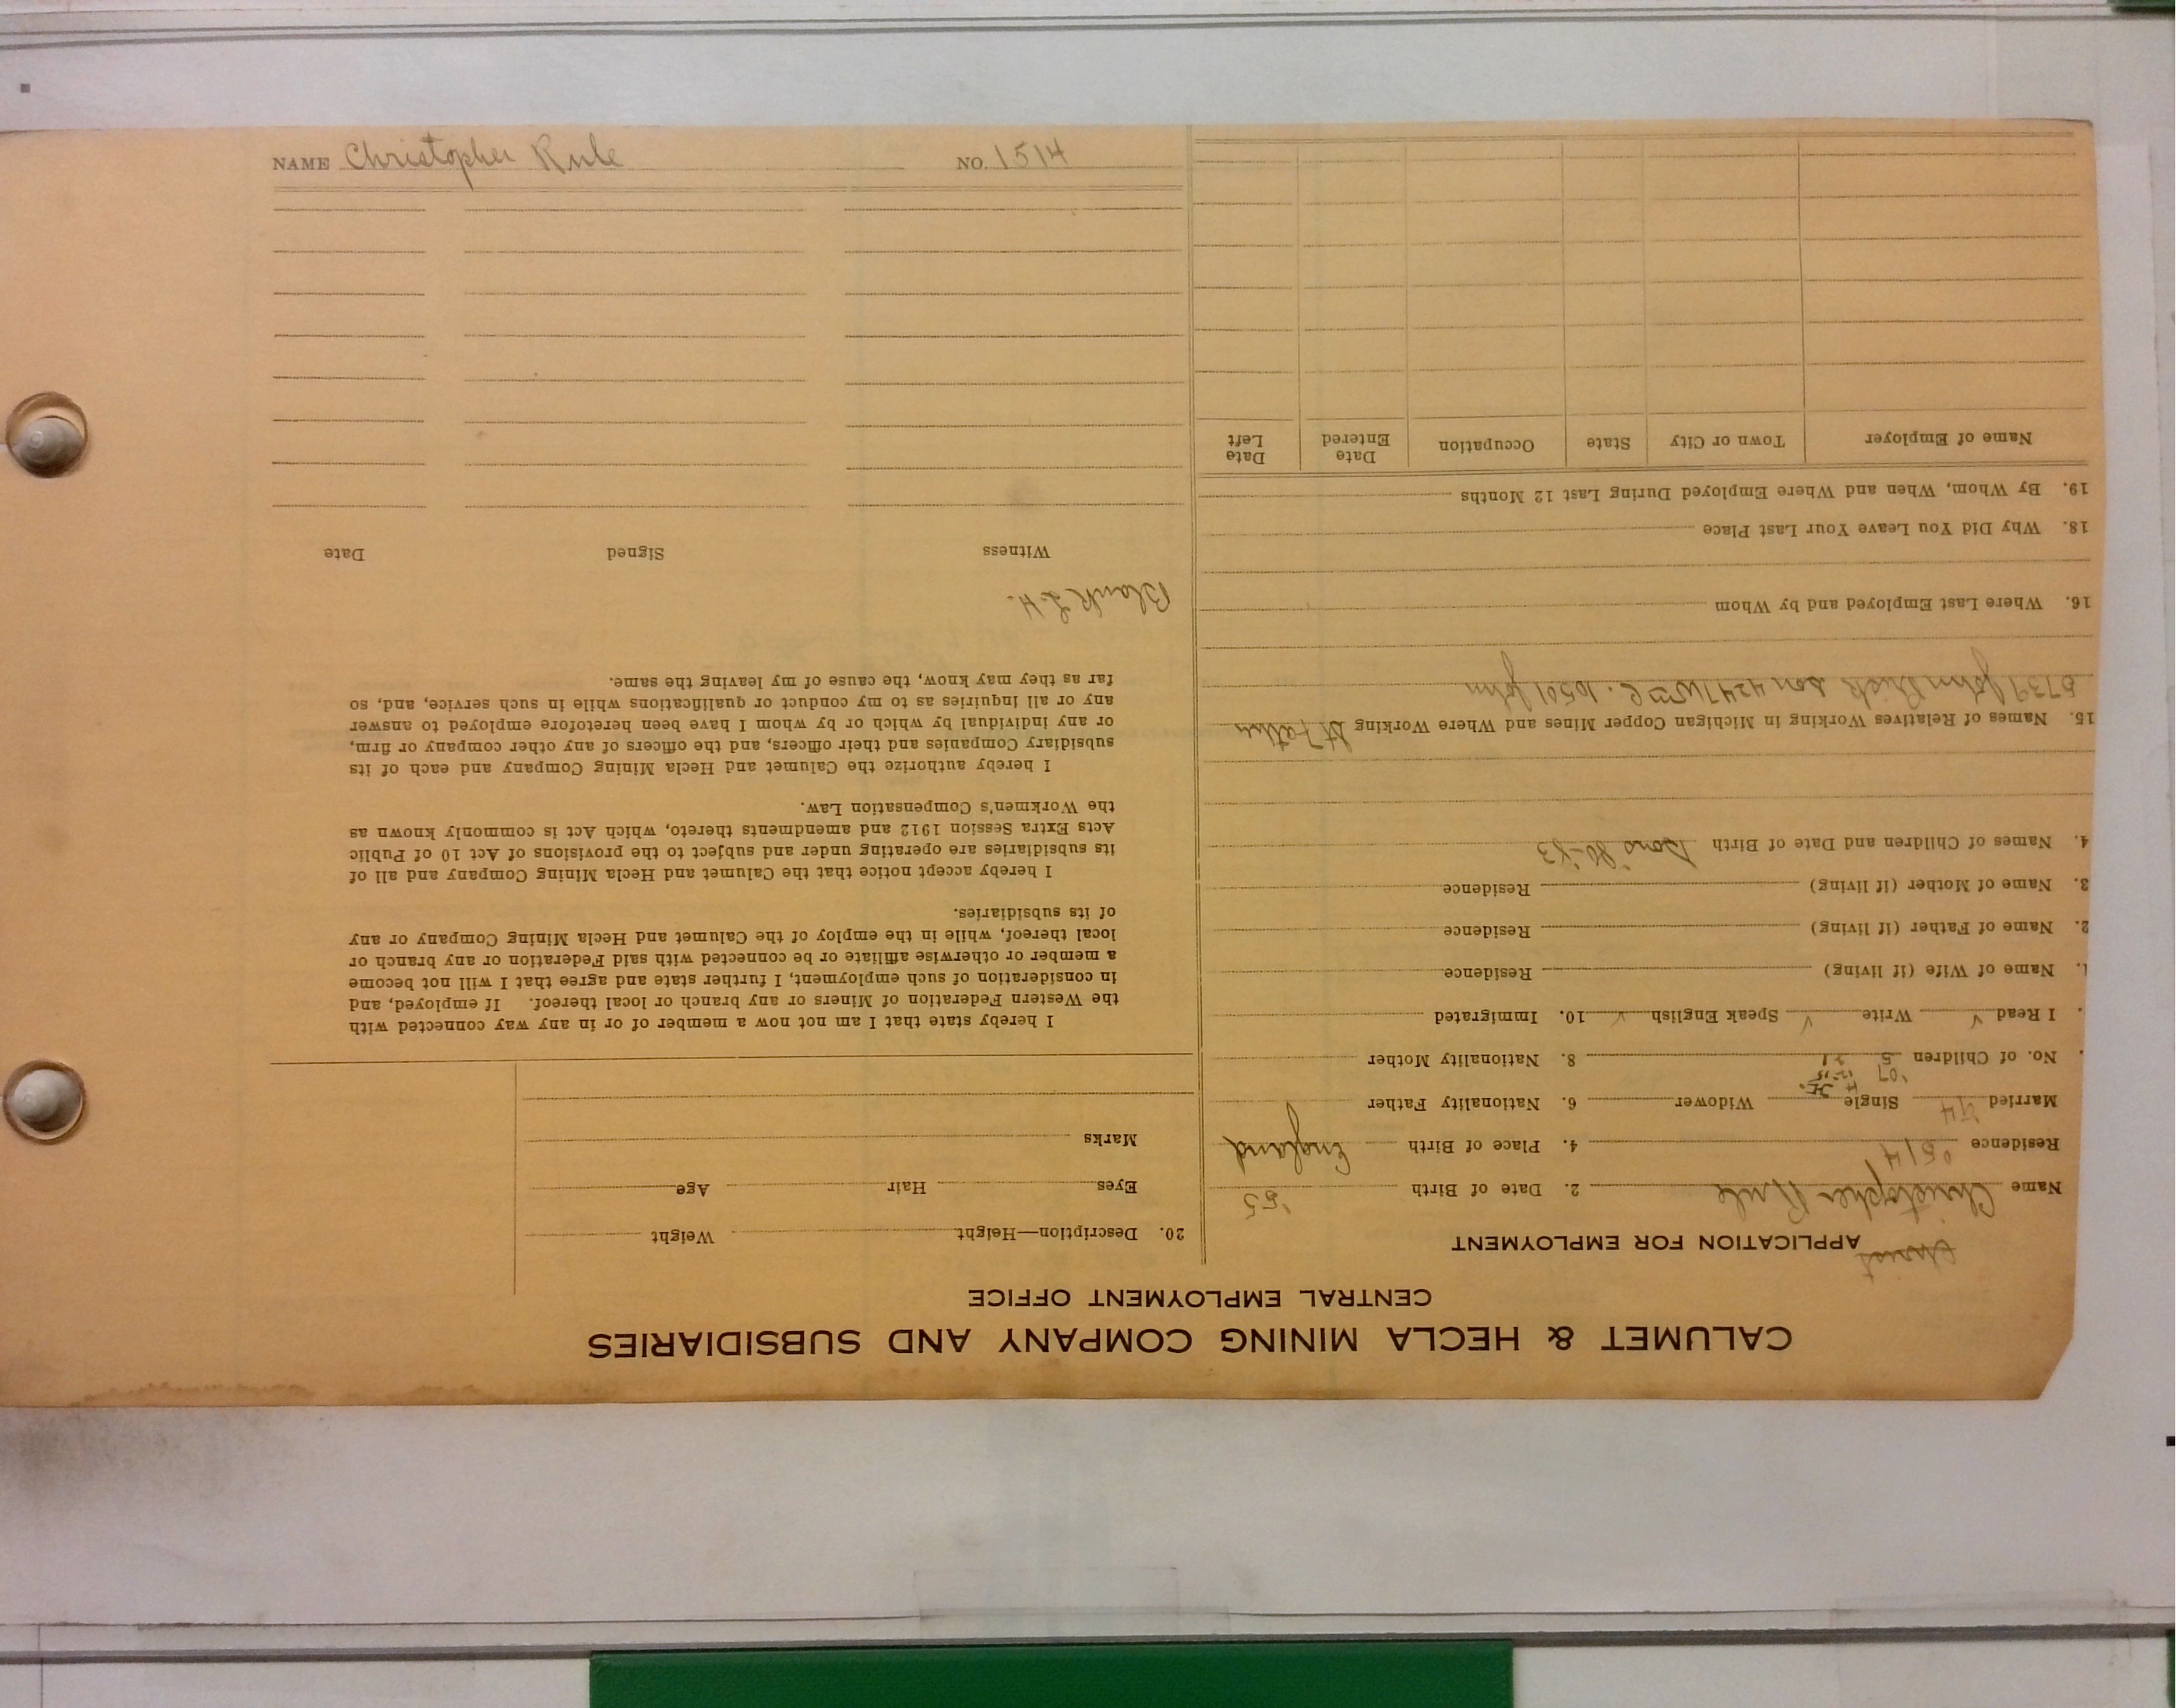 CALUMET & HECLA MINING COMPANY AND SUBSIDIARIES
CENTRAL EMPLOYMENT OFFICE
APPLICATION FOR EMPLOYMENT
Name Christopher Rule 2. Date of Birth '55
Residence 4. Place of Birth England
Married '74 Single Widower 6. Nationality Father
'07
No. of Children 5 8. Nationality Mother
I Read ✓ Write ✓ Speak English ✓ 10. Immigrated
1. Name of Wife (if living) Residence
2. Name of Father (if living) Residence
3. Name of Mother (if living) Residence
4. Names of Children and Date of Birth Sons '80-'83
15. Names of Relatives Working in Michigan Copper Mines and Where Working
John son 4247 Wm C. 10501 John
16. Where Last Employed and by Whom
18. Why Did You Leave Your Last Place
19. By Whom, When and Where Employed During Last 12 Months
Name of Employer Town or City State Occupation Date Entered Date Left
20. Description—Height Weight
Eyes Hair Age
Marks
I hereby state that I am not now a member of or in any way connected with
the Western Federation of Miners or any branch or local thereof. If employed, and
in consideration of such employment, I further state and agree that I will not become
a member or otherwise affiliate or be connected with said Federation or any branch or
local thereof, while in the employ of the Calumet and Hecla Mining Company or any
of its subsidiaries.
I hereby accept notice that the Calumet and Hecla Mining Company and all of
its subsidiaries are operating under and subject to the provisions of Act 10 of Public
Acts Extra Session 1912 and amendments thereto, which Act is commonly known as
the Workmen's Compensation Law.
I hereby authorize the Calumet and Hecla Mining Company and each of its
subsidiary Companies and their officers, and the officers of any other company or firm,
or any individual by which or by whom I have been heretofore employed to answer
any or all inquiries as to my conduct or qualifications while in such service, and, so
far as they may know, the cause of my leaving the same.
Witness Signed Date
NAME Christopher Rule NO. 1514